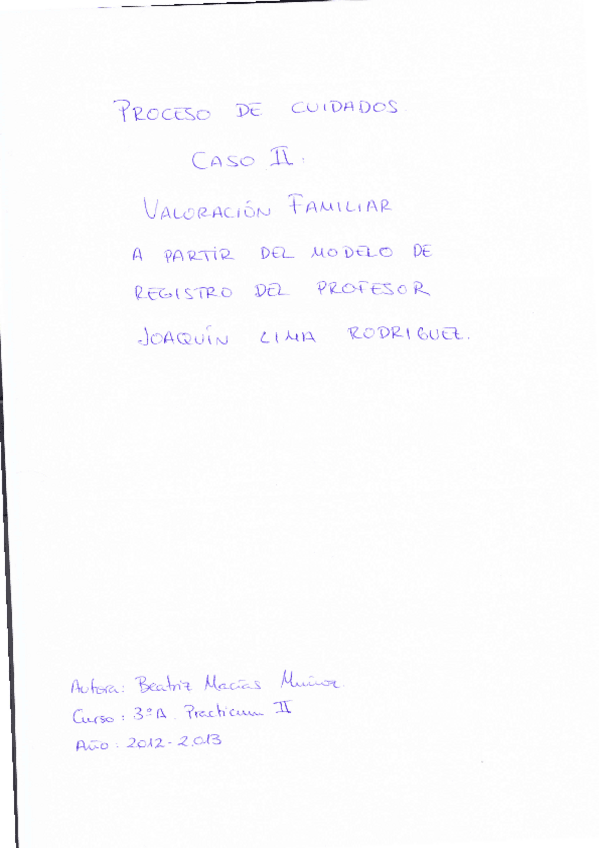 PROCESO DE CUIDADOS
CASO II.
VALORACIÓN FAMILIAR
A PARTIR DEL MODELO DE
REGISTRO DEL PROFESOR
JOAQUÍN LIMA RODRIGUEZ.
Autora: Beatriz Macías Muñoz.
Curso: 3ºA. Practicum II
Año: 2012-2.013